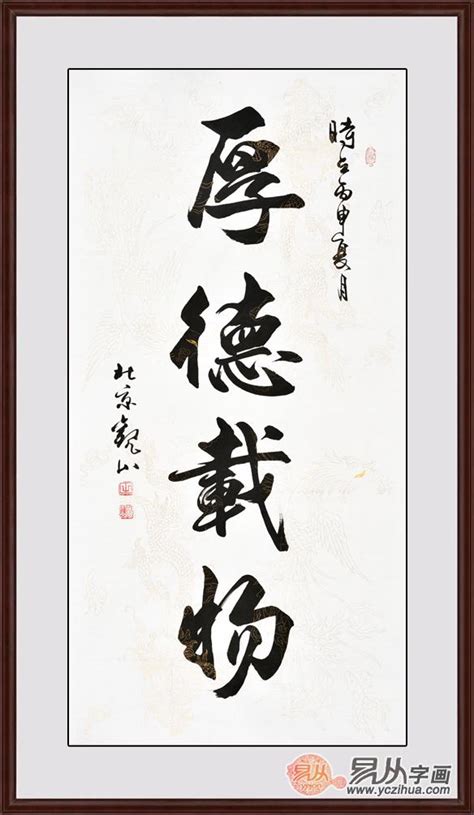 時在丙申夏月
厚德載物
北京觀山
易从字画
www.yczihua.com